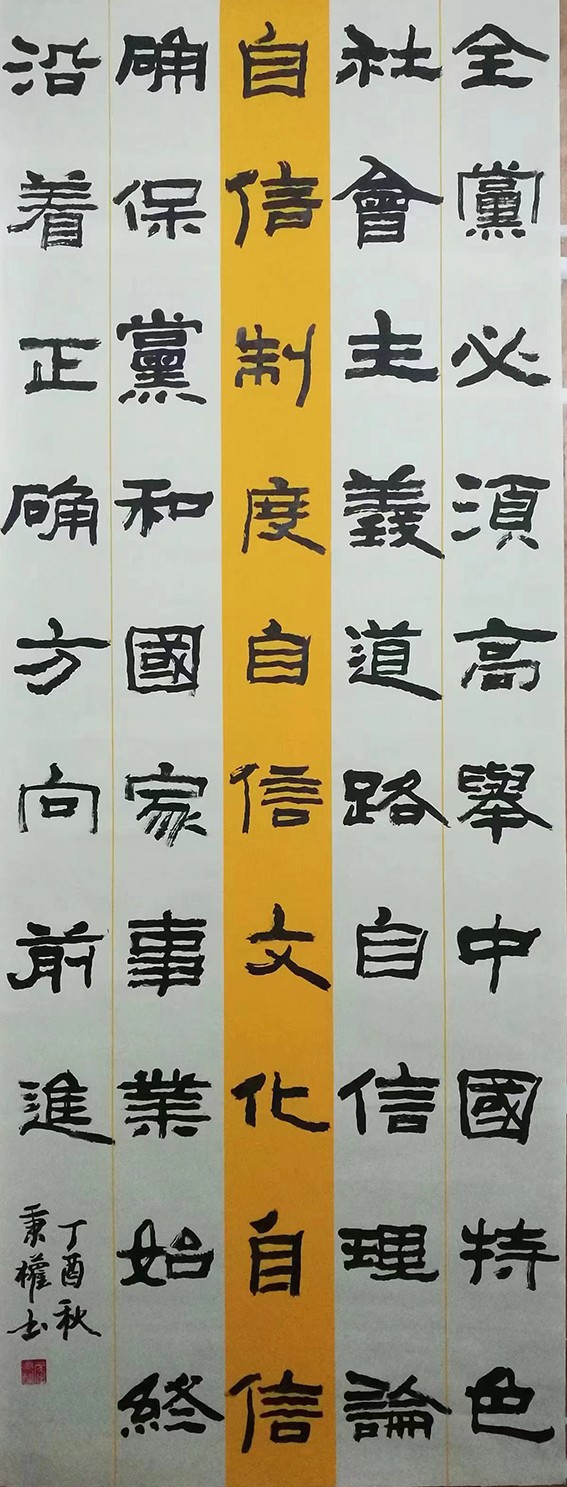 全黨必須高舉中國特色
社會主義道路自信理論
自信制度自信文化自信
确保黨和國家事業始終
沿着正确方向前進
丁酉秋
秉權书